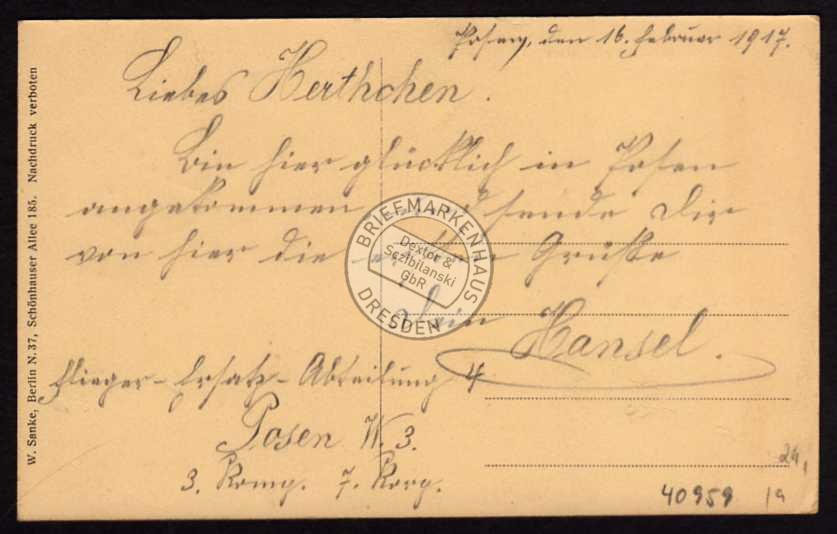 Posen, den 16. Februar 1917.
Liebes Herthchen.
Bin hier glücklich in Posen
angekommen und sende Dir
von hier die Grüße
Dein Hansel.
Flieger-Ersatz-Abteilung 4
Posen W. 3.
3. Komp. 7. Korp.
W. Sanke, Berlin N. 37, Schönhauser Allee 185. Nachdruck verboten
BRIEFMARKENHAUS
Dextor &
Sczibilanski
GbR
DRESDEN
40959